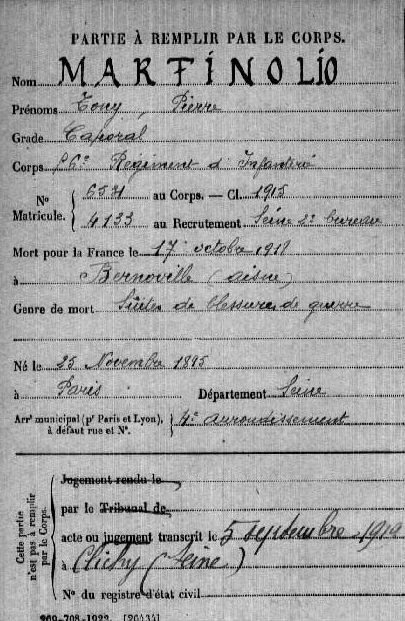 PARTIE À REMPLIR PAR LE CORPS.
Nom MARTINOLIO
Prénoms Tony, Pierre
Grade Caporal
Corps Régiment d'Infanterie
N° Matricule. 6571 au Corps. — Cl. 1915
4133 au Recrutement Seine 2e bureau
Mort pour la France le 17 octobre 1918
à Bernoville (aisne)
Genre de mort Suites de blessures de guerre
Né le 25 Novembre 1895
à Paris Département Seine
Arrt municipal (pr Paris et Lyon), à défaut rue et N°. 4e arrondissement
Cette partie n'est pas à remplir par le Corps.
Jugement rendu le
par le Tribunal de
acte ou jugement transcrit le 5 septembre 1919
à Clichy (Seine)
N° du registre d'état civil
269-708-1922. [26434]